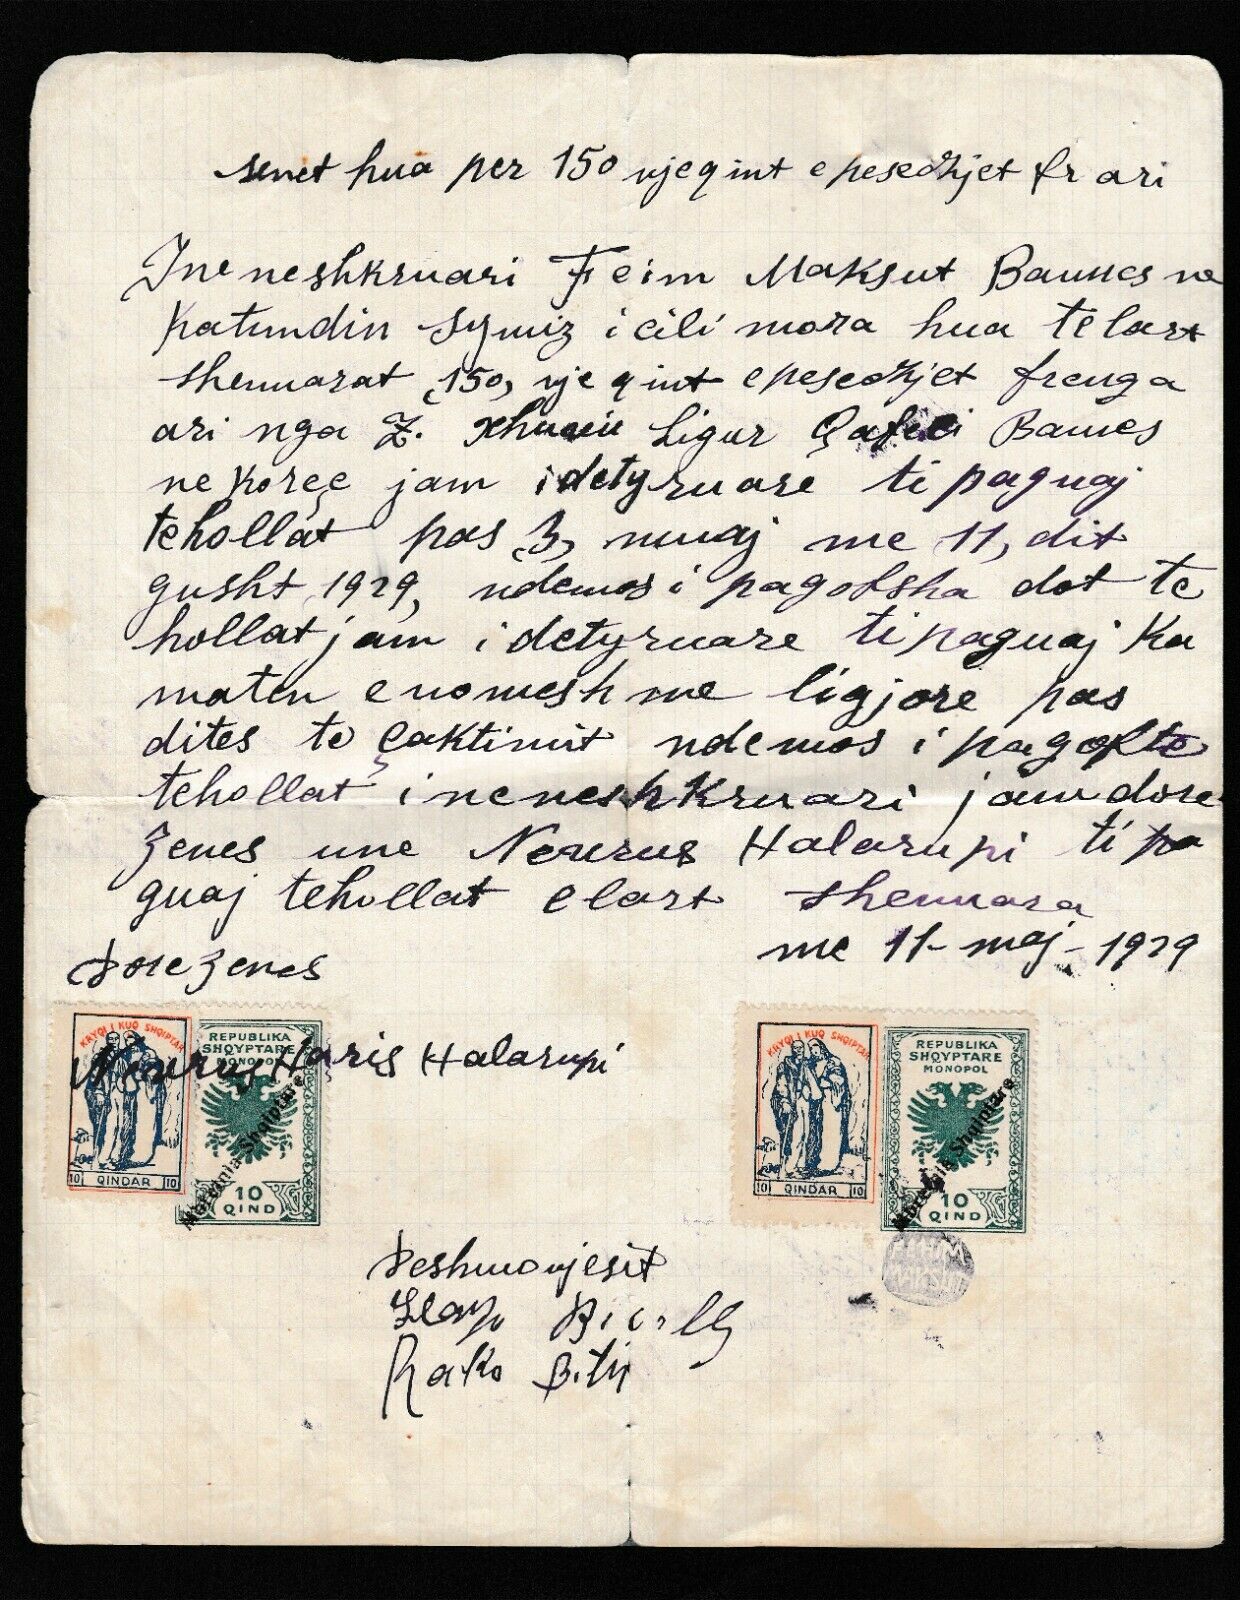 senet hua per 150 njeqint e pesedhjet fr ari
I neneshkruari Feim Maksut Banues ne
Katundin Symiz i cili mora hua te lart
shenuarat 150, nje qint e pesedhjet frenga
ari nga Z. Ligor Banues
ne Korçe jam i detyruare ti paguaj
tehollat pas 3, muaj me 11, dit
gusht 1929, ndemos i pagofsha dot te
hollat jam i detyruare ti paguaj Ka
maten e nomeshme ligjore pas
dites te çaktimit ndemos i pagofte
tehollat i neneshkruari jam dore
zenes une Nevrus Halarupi ti pa
guaj tehollat e lart shenuara
me 11- maj - 1929
Dorezenes
Nevrus Haris Halarupi
KRYQI I KUQ SHQIPTAR
10 QINDAR 10
REPUBLIKA
SHQYPTARE
MONOPOL
Mbretnia Shqiptare
10
QIND
KRYQI I KUQ SHQIPTAR
10 QINDAR 10
REPUBLIKA
SHQYPTARE
MONOPOL
Mbretnia Shqiptare
10
QIND
Deshmonjesit
Rako